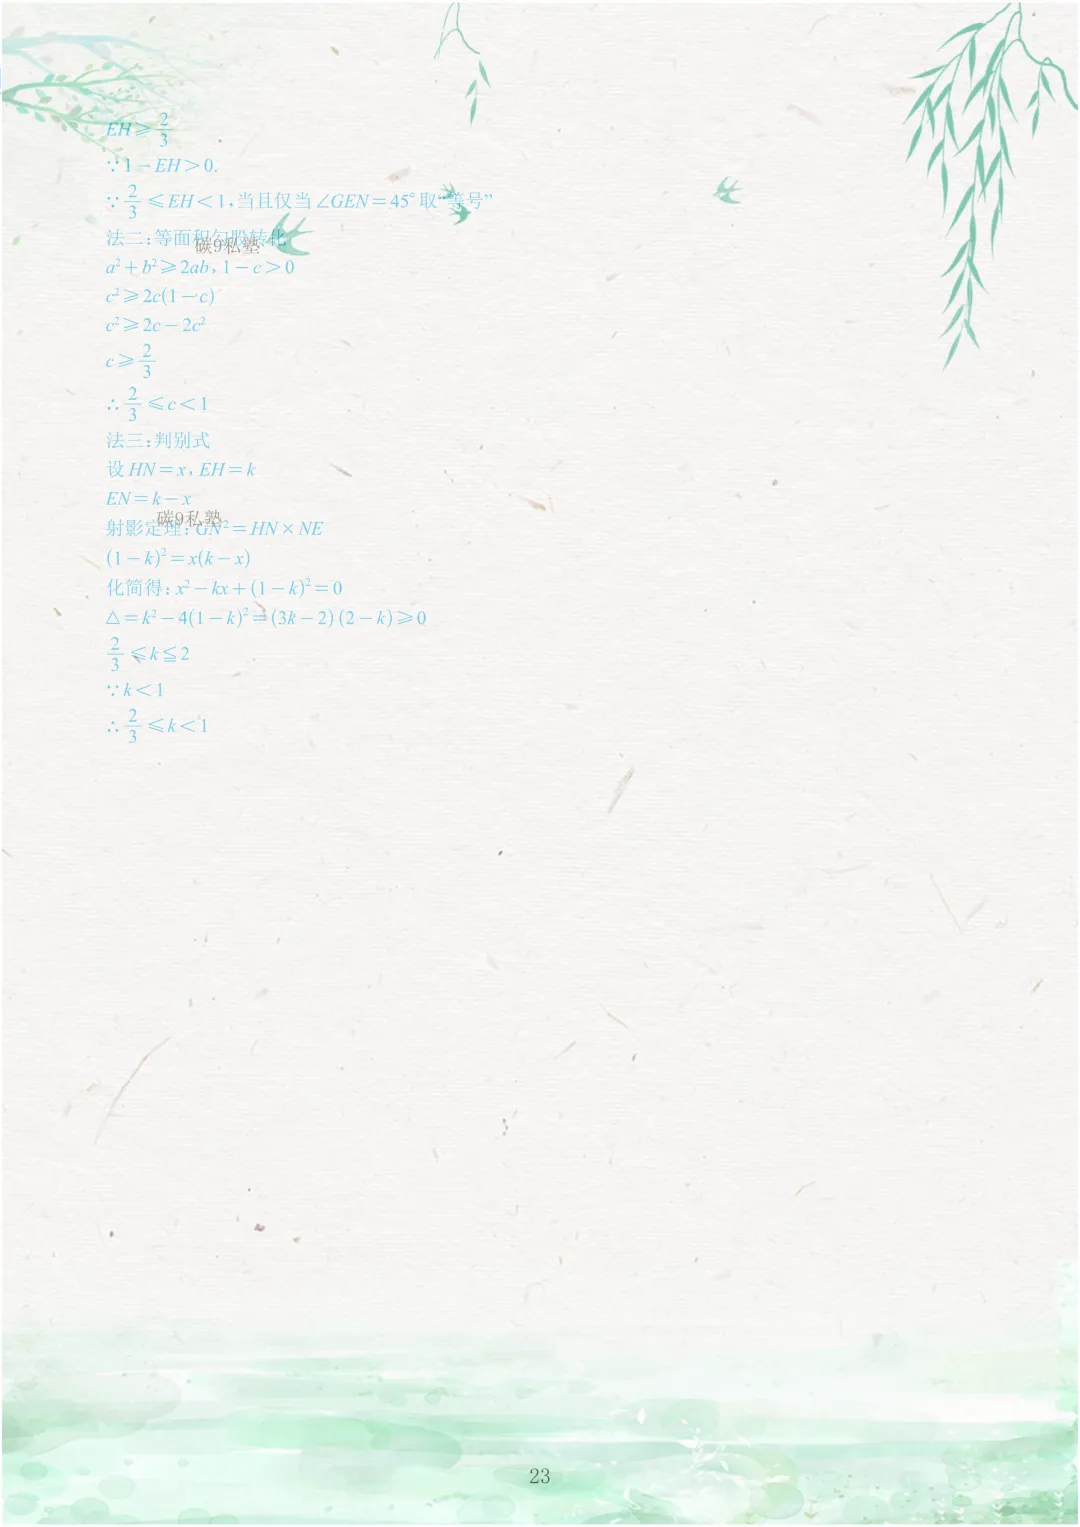 EH≥2/3
∵1-EH>0.
∵2/3≤EH<1,当且仅当∠GEN=45°取“等号”
法二:等面积勾股转化
碳9私塾
a²+b²≥2ab,1-c>0
c²≥2c(1-c)
c²≥2c-2c²
c≥2/3
∴2/3≤c<1
法三:判别式
设HN=x,EH=k
EN=k-x
碳9私塾
射影定理:GN²=HN×NE
(1-k)²=x(k-x)
化简得:x²-kx+(1-k)²=0
△=k²-4(1-k)²=(3k-2)(2-k)≥0
2/3≤k≦2
∵k<1
∴2/3≤k<1
23